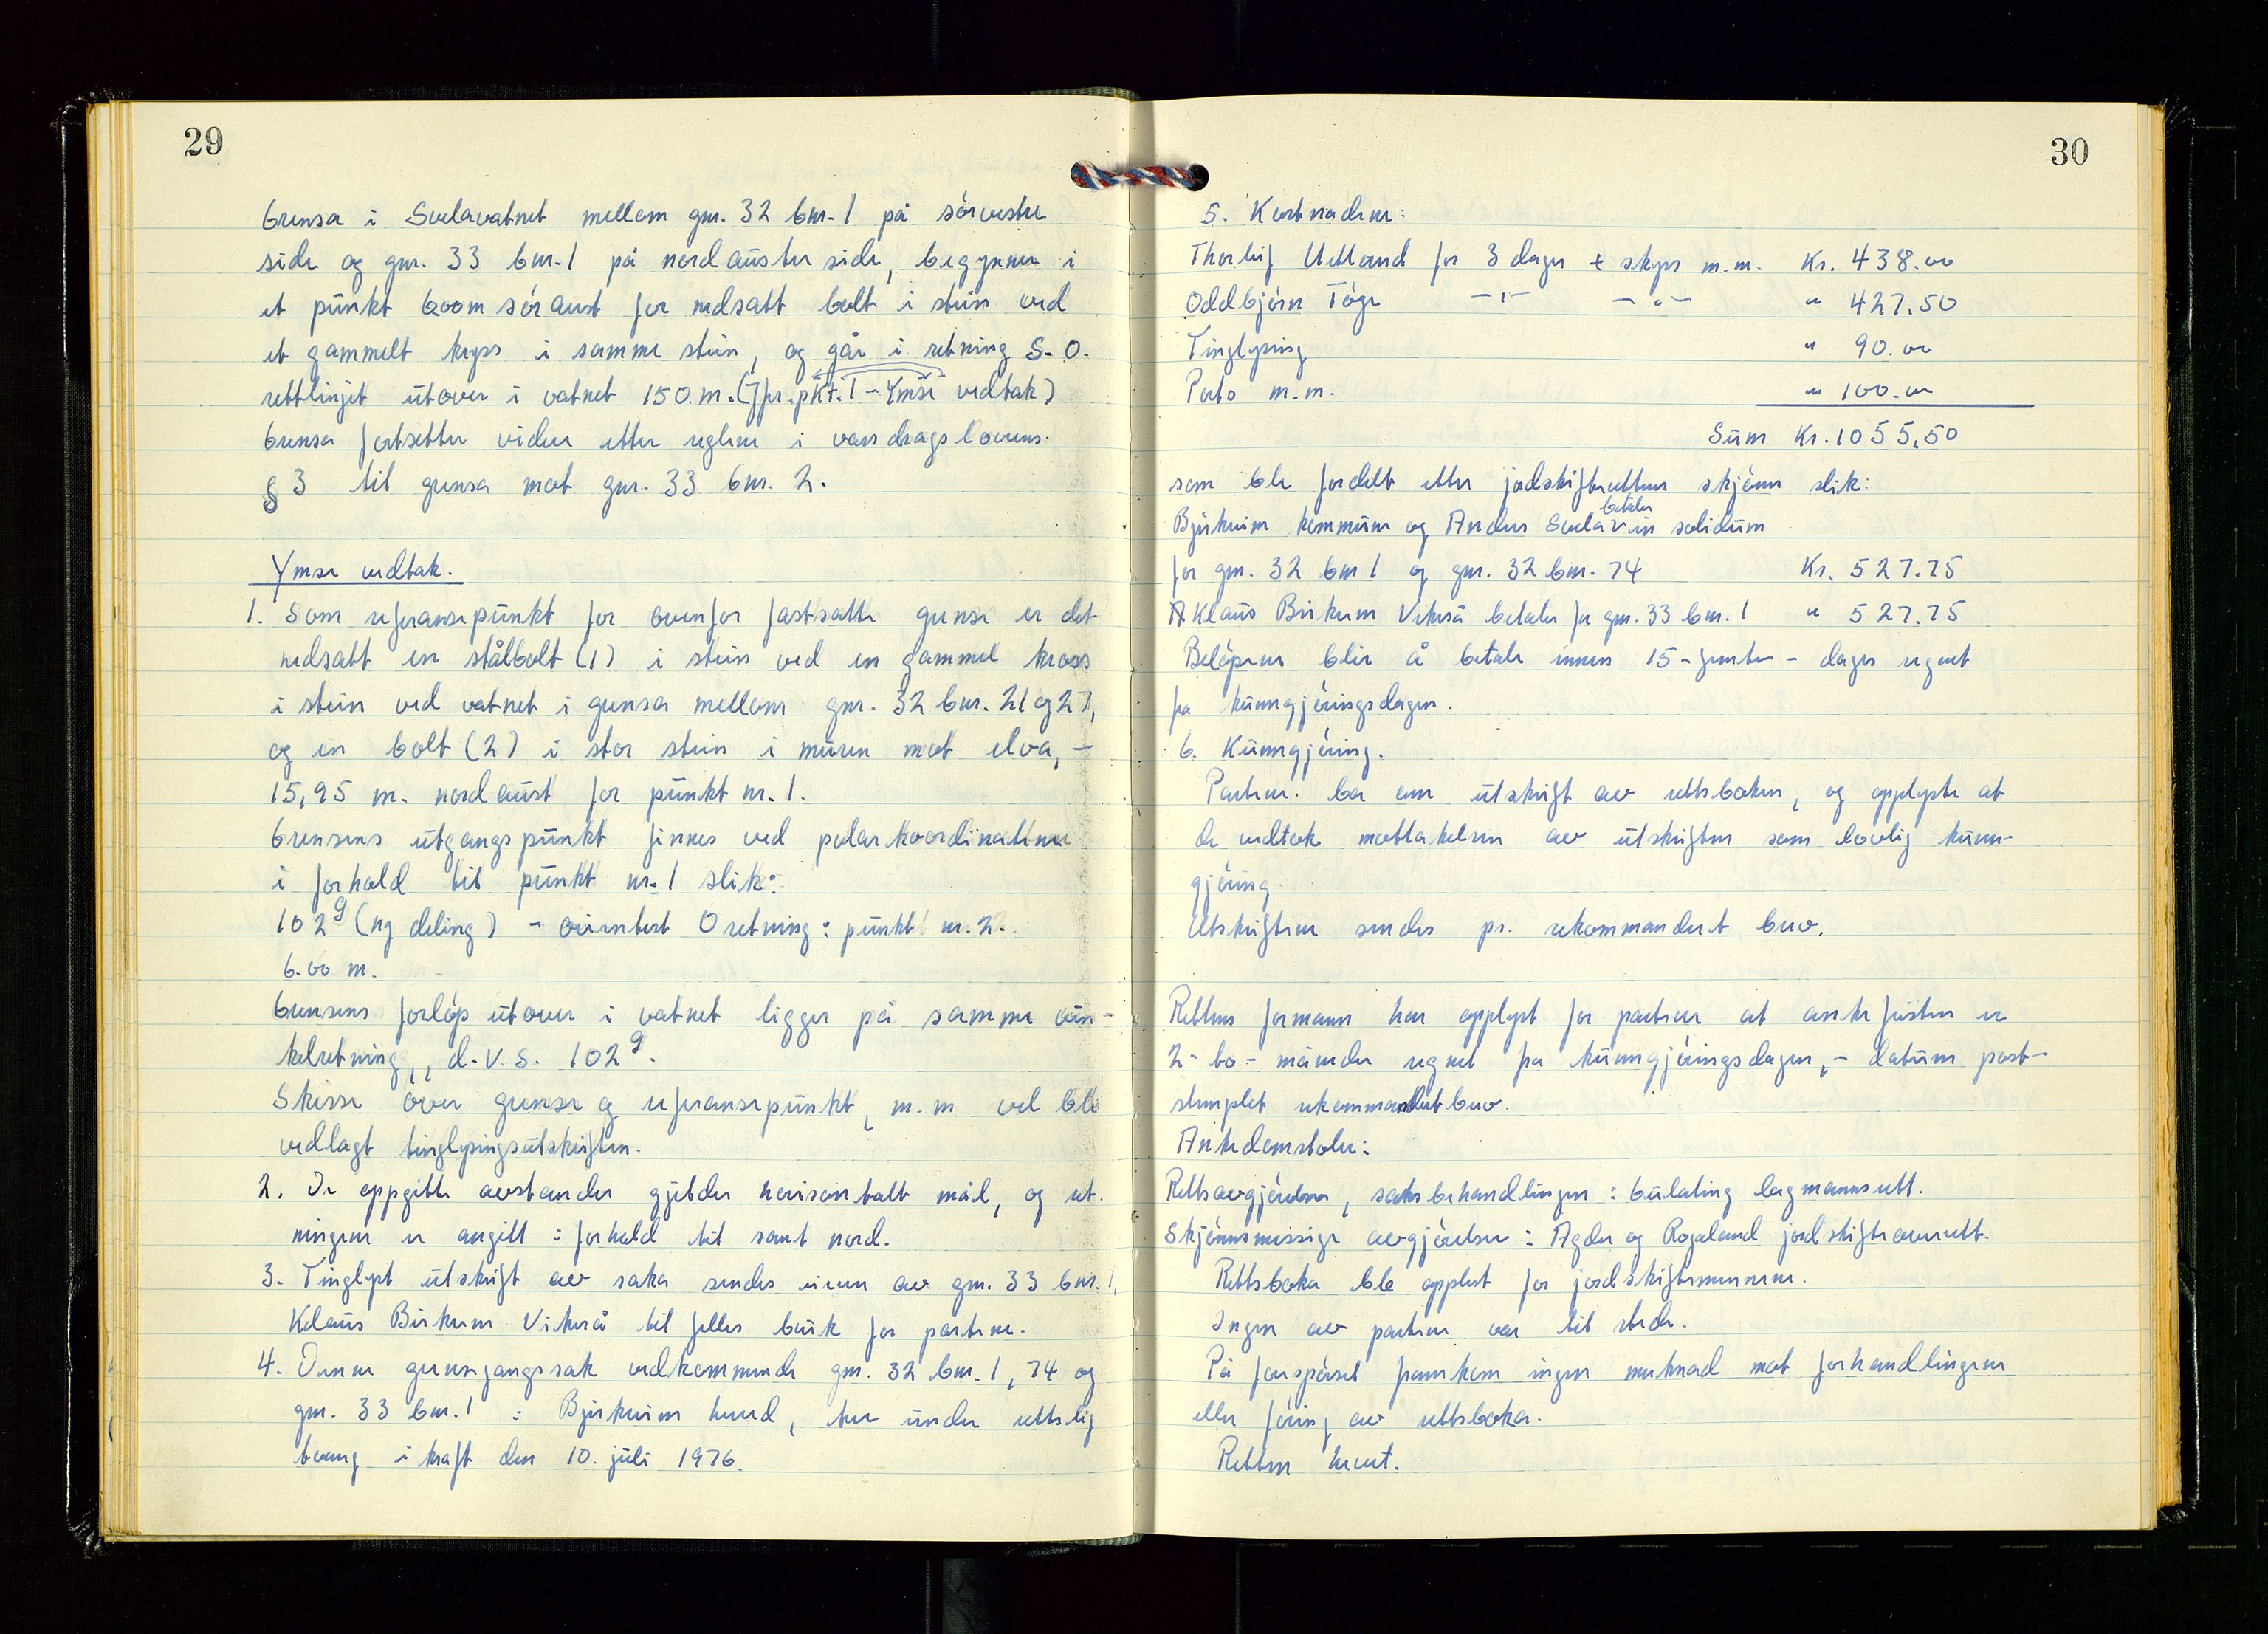 29
Grensa i Svelavatnet mellom gnr. 32 bnr. 1 på sørvestre
side og gnr. 33 bnr. 1 på nordaustre side, begynner i
et punkt 6.00m søraust for nedsatt bolt i stein ved
et gammelt kryss i samme stein, og går i retning S.O.
rettlinjet utover i vatnet 150.m. (Jfr. pkt. 1 - Ymse vedtak)
Grensa fortsetter vider etter reglene i vassdragslovens
§ 3 til grensa mot gnr. 33 bnr. 2.
Ymse vedtak.
1. Som referansepunkt for ovenfor fastsatte grense er det
nedsatt en stålbolt (1) i stein ved en gammel kross
i stein ved vatnet i grensa mellom gnr. 32 bnr. 21 og 27,
og en bolt (2) i stor stein i muren mot elva, -
15,95 m. nordaust for punkt nr. 1.
Grensens utgangspunkt finnes ved polarkoordinatene
i forhold til punkt nr. 1 slik:
102g (ny deling) - orientert O retning: punkt nr. 2.
6.00 m.
Grensens forløp utover i vatnet ligger på samme vin-
kelretning,, d.v.s. 102g.
Skisse over grense og referansepunkt, m.m vil bli
vedlagt tinglysingsutskriften.
2. De oppgitte avstander gjelder horisontalt mål, og ret-
ningene er angitt i forhold til sant nord.
3. Tinglyst utskrift av saka sendes eieren av gnr. 33 bnr. 1,
Klaus Birkrem Vikeså til felles bruk for partene.
4. Denne grensegangssak vedkommende gnr. 32 bnr. 1, 74 og
gnr. 33 bnr. 1 i Bjerkreim herred, trer under rettslig
tvang i kraft den 10. juli 1976.
30
5. Kostnadene:
Thorleif Uelland for 3 dager + skyss m.m. Kr. 438.00
Oddbjørn Tøge -"- -"- " 427.50
Tinglysing " 90.00
Porto m.m. " 100.00
Sum Kr. 1055,50
som ble fordelt etter jordskifterettens skjønn slik:
betaler
Bjerkreim kommune og Anders Svela in solidum
for gnr. 32 bnr 1 og gnr. 32 bnr. 74 Kr. 527.75
Klaus Birkrem Vikeså betaler for gnr. 33 bnr. 1 " 527.75
Beløpene blir å betale innen 15 - femten - dager regnet
fra kunngjøringsdagen.
6. Kunngjøring.
Partene. ba om utskrift av rettsboken, og opplyste at
de vedtok mottakelsen av utskriften som lovlig kunn-
gjøring.
Utskriftene sendes pr. rekommandert brev.
Rettens formann har opplyst for partene at ankefristen er
2 - to - måneder regnet fra kunngjøringsdagen, - datum post-
stemplet rekommandert brev.
Ankedomstoler:
Rettsavgjørelser, saksbehandlingen: Gulating lagmannsrett.
Skjønnsmessige avgjørelser: Agder og Rogaland jordskifteoverrett.
Rettsboka ble opplest for jordskiftemennene.
Ingen av partene var til stede.
På forespørsel framkom ingen merknad mot forhandlingene
eller føring av rettsboka.
Retten hevet.